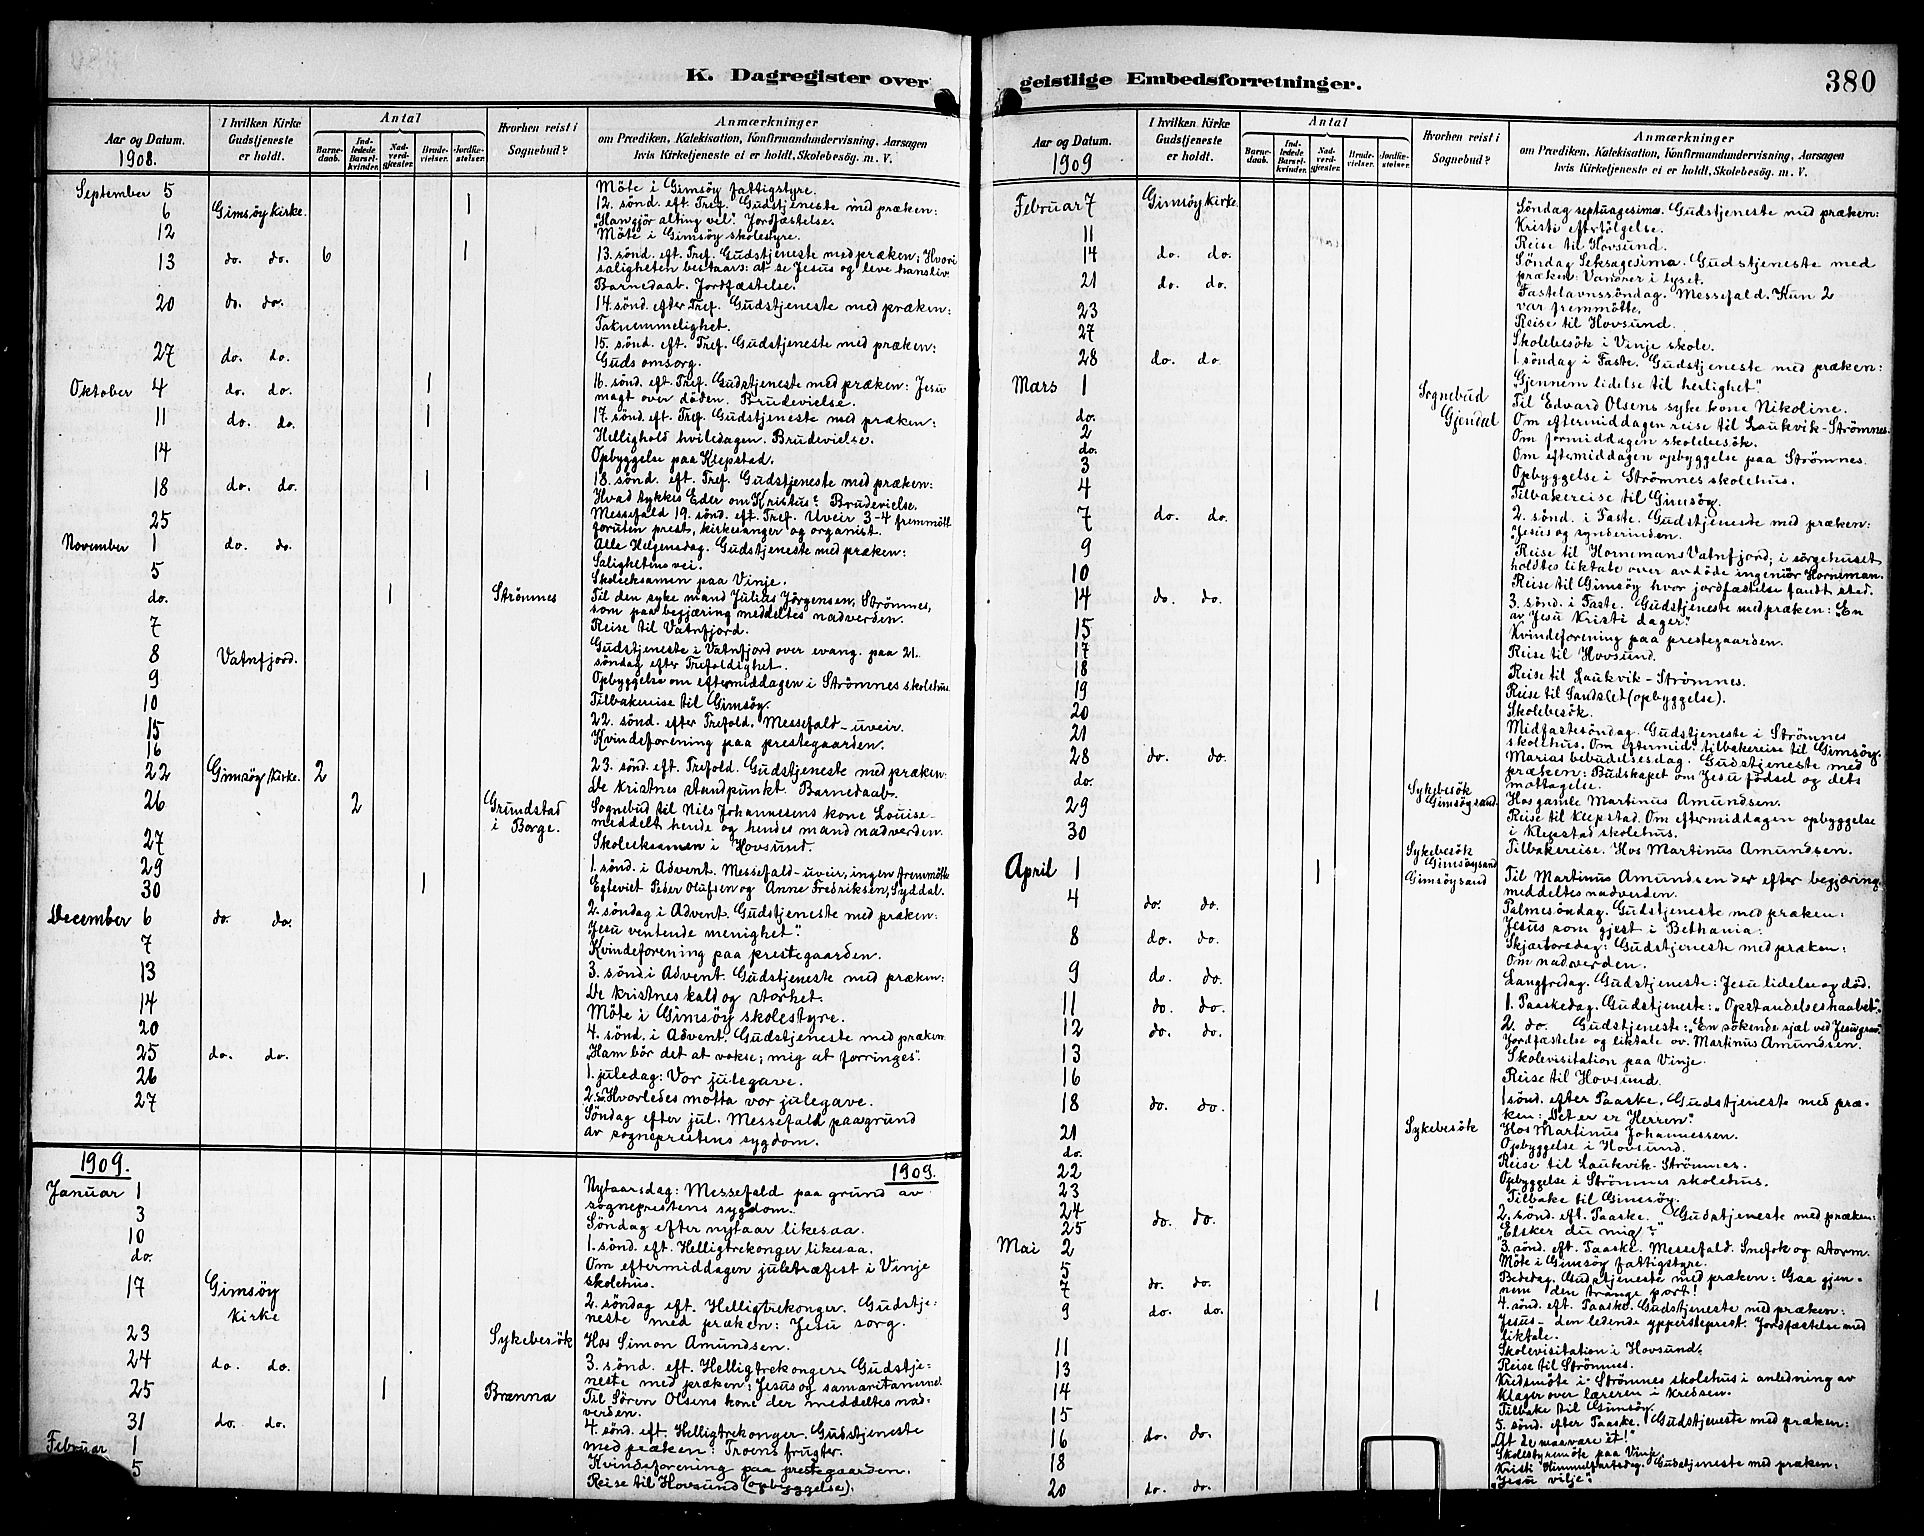 K. Dagregister over
Aar og Datum.
1908.
I hvilken Kirke Gudstjeneste er holdt.
Antal
Barnedaab.
Indledede Barselkvinder.
Nadverdgjester.
Brudevielser.
Jordfæstelser.
Hvorhen reist i Sognebud?
Anmærkninger
om Prædiken, Katekisation, Konfirmandundervisning, Aarsagen
hvis Kirketjeneste ei er holdt, Skolebesøg. m. V.
September 5 Möte i Gimsöy fattigstyre.
6 Gimsöy Kirke. 1 12. sönd. eft. Tref. Gudstjeneste med præken:
"Han gjör alting vel". Jordfæstelse.
12 Möte i Gimsöy skolestyre.
13 do. do. 6 1 13. sönd. eft. Tref. Gudstjeneste med præken: Hvori
saligheten bestaar: at se Jesus og leve hans liv.
Barnedaab. Jordfæstelse.
20 do. do. 14. sönd. efter Tref. Gudstjeneste med præken:
Taknemmelighet.
27 do. do. 15. sönd. eft. Tref. Gudstjeneste med præken:
Guds omsorg.
Oktober 4 do. do. 1 16. sönd. eft. Tref. Gudstjeneste med præken: Jesu
magt over döden. Brudevielse.
11 do. do. 1 17. sönd. eft. Tref. Gudstjeneste med præken:
Hellighold hviledagen. Brudevielse.
14 Opbyggelse paa Klepstad.
18 do. do. 1 18. sönd. eft. Tref. Gudstjeneste med præken:
Hvad tykkes Eder om Kristus? Brudevielse.
25 Messefald 19. sönd. eft. Tref. Uveir 3-4 fremmött
foruten prest, kirkesanger og organist.
November 1 do. do. Alle Helgensdag. Gudstjeneste med præken:
Salighetens vei.
5 Skoleeksamen paa Vinje.
do. 1 Strömnes Til den syke mand Julius Jörgensen, Strömnes,
som paa begjæring meddeltes nadverden.
7 Reise til Vatnfjord.
8 Vatnfjord. Gudstjeneste i Vatnfjord over evang. paa 21.
söndag efter Trefoldighet.
9 Opbyggelse om eftermiddagen i Strömnes skolehus.
10 Tilbakereise til Gimsöy.
15 22. sönd. efter Trefold. Messefald - uveir.
16 Kvindeforening paa prestegaarden.
22 Gimsöy Kirke. 2 23. sönd. eft. Trefold. Gudstjeneste med præken:
De kristnes standpunkt. Barnedaab.
26 2 Grundstad i Borge. Sognebud til Nils Johannesens kone Louise-
meddelt hende og hendes mand nadverden.
27 Skoleeksamen i Hovsund.
29 1. sönd. i Advent. Messefald - uveir, ingen fremmötte
30 1 Egteviet Peder Olufsen og Anne Fredriksen, Syddal.
December 6 do. do. 2. söndag i Advent. Gudstjeneste med præken:
Jesu ventende menighet".
7 Kvindeforening paa prestegaarden.
13 3. sönd i Advent. Gudstjeneste med præken:
De kristnes kald og storhet.
14 Möte i Gimsöy skolestyre.
20 4. sönd. i Advent. Gudstjeneste med præken
"Ham bör det at vokse; mig at forringes".
25 do. do. 1. juledag: Vor julegave.
26 2. do Hvorledes motta vor julegave.
27 Söndag efter jul. Messefald paa grund
av sogneprestens sygdom.
1909. 1909.
Januar 1 Nytaarsdag: Messefald paa grund av
sogneprestens sygdom.
3 Söndag efter nytaar likesaa.
10 1. sönd. eft. Helligtrekonger likesaa.
do. Om eftermiddagen juletræfest i Vinje
skolehus.
17 Gimsöy Kirke 2. söndag eft. Helligtrekonger. Gudstje-
neste med præken: Jesu sorg.
23 Sykebesök Hos Simon Amundsen.
24 do. do. 3. sönd. eft. Helligtrekonger. Gudstje-
neste med præken: Jesus og samaritaninnd.
25 1 Brenna Til Sören Olsens kone der meddeltes nad-
verden.
31 do. do. 4. sönd. eft. Helligtrekonger. Gudstjeneste
med præken: Troens frugter.
Februar 1 Kvindeforening paa prestegaarden.
5 Reise til Hovsund (opbyggelse).
geistlige Embedsforretninger.
380
Aar og Datum.
1909
I hvilken Kirke Gudstjeneste er holdt.
Antal
Barnedaab.
Indledede Barselkvinder.
Nadverdgjester.
Brudevielser.
Jordfæstelser.
Hvorhen reist i Sognebud?
Anmærkninger
om Prædiken, Katekisation, Konfirmandundervisning, Aarsagen
hvis Kirketjeneste ei er holdt, Skolebesøg. m. V.
Februar 7 Gimsöy Kirke. Söndag septuagesima. Gudstjeneste med præken:
Kristi efterfölgelse.
11 Reise til Hovsund.
14 do. do. Söndag Seksagesima. Gudstjeneste med
præken: Vandrer i lyset.
21 do. do. Fastelavnssöndag. Messefald. Kun 2
var fremmötte.
23 Reise til Hovsund.
27 Skolebesök i Vinje skole.
28 do. do. 1. söndag i Faste. Gudstjeneste med præken:
"Gjennem lidelse til herlighet".
Mars 1 Sognebud Gjendal Til Edvard Olsens syke kone Nikoline.
do. Om eftermiddagen reise til Laukvik-Strömnes.
2 Om formiddagen skolebesök.
do. Om eftermiddagen opbyggelse paa Strömnes.
3 Opbyggelse i Strömnes skolehus.
4 Tilbakereise til Gimsöy.
7 do. do. 2. sönd. i Faste. Gudstjeneste med præken:
Jesus og synderinden.
9 Reise til Hornemans Vatnfjord; i sörgehuset
holdtes liktale over avdöde ingeniör Horneman.
10 Reise til Gimsöy hvor jordfæstelse fandt sted.
14 do. do. 3. sönd. i Faste. Gudstjeneste med præken: "En
av Jesu Kristi dager."
15 Kvindeforening paa prestegaarden.
17 Reise til Hovsund.
18 Reise til Laukvik-Strömnes.
19 Reise til Sandslet (opbyggelse).
20 Skolebesök.
21 Midfastesöndag. Gudstjeneste i Strömnes
skolehus. Om eftermid. tilbakereise til Gimsöy.
28 do. do. Marias bebudelsesdag. Gudstjeneste med
præken: Budskapet om Jesu födsel og dets
mottagelse.
do. Sykebesök Gimsöysand Hos gamle Martinus Amundsen.
29 Reise til Klepstad. Om eftermiddagen opbyggelse
i Klepstad skolehus.
30 Sykebesök Gimsöysand Tilbakereise. Hos Martinus Amundsen.
April 1 1 Gimsöysand Til Martinus Amundsen der efter begjæring
meddeltes nadverden.
4 do. do. Palmesöndag. Gudstjeneste med præken:
Jesus som gjest i Bethania.
8 do. do. Skjærtorsdag: Gudstjeneste med præken:
Om nadverden.
9 do. do. Langfredag. Gudstjeneste: Jesu lidelse og död.
11 do. do. 1. Paaskedag. Gudstjeneste: "Opstandelseshaabet".
12 do. do. 2. do. Gudstjeneste: "En sökende sjæl ved Jesu grav.
Jordfæstelse og liktale ov. Martinus Amundsen.
13 Skolevisitation paa Vinje
16 Reise til Hovsund.
18 do. do. 1 sönd. efter Paaske. Gudstjeneste med præ-
ken: "Det er Herren".
21 Sykebesök Hos Martinus Johannessen.
do. Opbyggelse i Hovsund.
22 Reise til Laukvik-Strömnes.
23 Opbyggelse i Strömnes skolehus.
24 Tilbake til Gimsöy.
25 do. do. 2. sönd. eft. Paaske. Gudstjeneste med præken:
"Elsker du mig?"
Mai 2 3. sönd. eft. Paaske. Messefald. Snefok og storm.
5 Möte i Gimsöy fattigstyre.
7 do. do. Bededag. Gudstjeneste med præken: Gaa gjen-
nem den trange port!
9 do. do. 1 4. sönd. eft. Paaske. Gudstjeneste med præken:
Jesus - den ledende yppersteprest. Jordfæstelse med
liktale.
11 Skolevisitation i Hovsund.
13 Reise til Strömnes.
14 Kredsmöte i Strömnes skolehus i anledning av
klager over læreren i kredsen.
15 Tilbake til Gimsöy.
16 do. do. 5. sönd. efter Paaske. Gudstjeneste med præken:
"At de maa være ét!"
18 Skolestyremöte paa Vinje.
20 do. do. Kristi Himmelfartsdag. Gudstjeneste med præken:
"Jesu vilje".